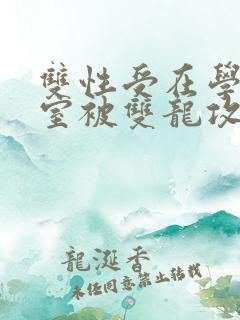 雙性受在學
室被雙龍攻
龍涎香
未任同意禁止轉載